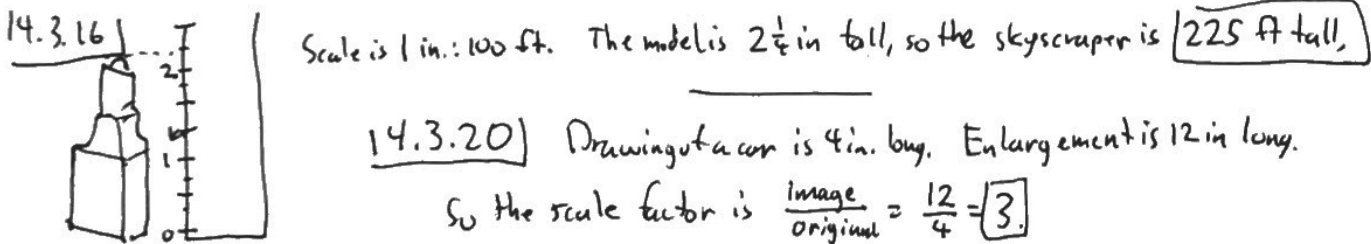 14.3.16
Scale is 1 in.: 100 ft. The model is 2 1/4 in tall, so the skyscraper is 225 ft tall.
2
1
0
14.3.20 Drawing of a car is 4 in. long. Enlargement is 12 in long.
So the scale factor is image/original = 12/4 = 3.